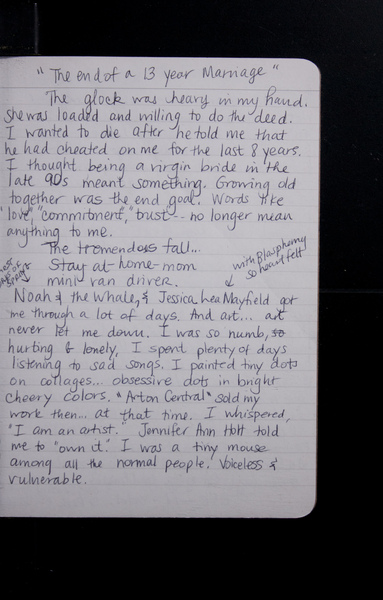 "The end of a 13 year Marriage"
The glock was heavy in my hand.
She was loaded and willing to do the deed.
I wanted to die after he told me that
he had cheated on me for the last 8 years.
I thought being a virgin bride in the
late 90s meant something. Growing old
together was the end goal. Words like
"love," "commitment," "trust" -- no longer mean
anything to me.
The tremendous fall...
Stay at-home-mom
mini van driver.
with Blasphemy
so heart felt
Noah & the Whale, & Jessica Lea Mayfield got
me through a lot of days. And art... art
never let me down. I was so numb, so
hurting & lonely, I spent plenty of days
listening to sad songs. I painted tiny dots
on collages... obsessive dots in bright
cheery colors. "Art on Central" sold my
work then... at that time. I whispered,
"I am an artist." Jennifer Ann Holt told
me to "own it." I was a tiny mouse
among all the normal people. Voiceless &
vulnerable.